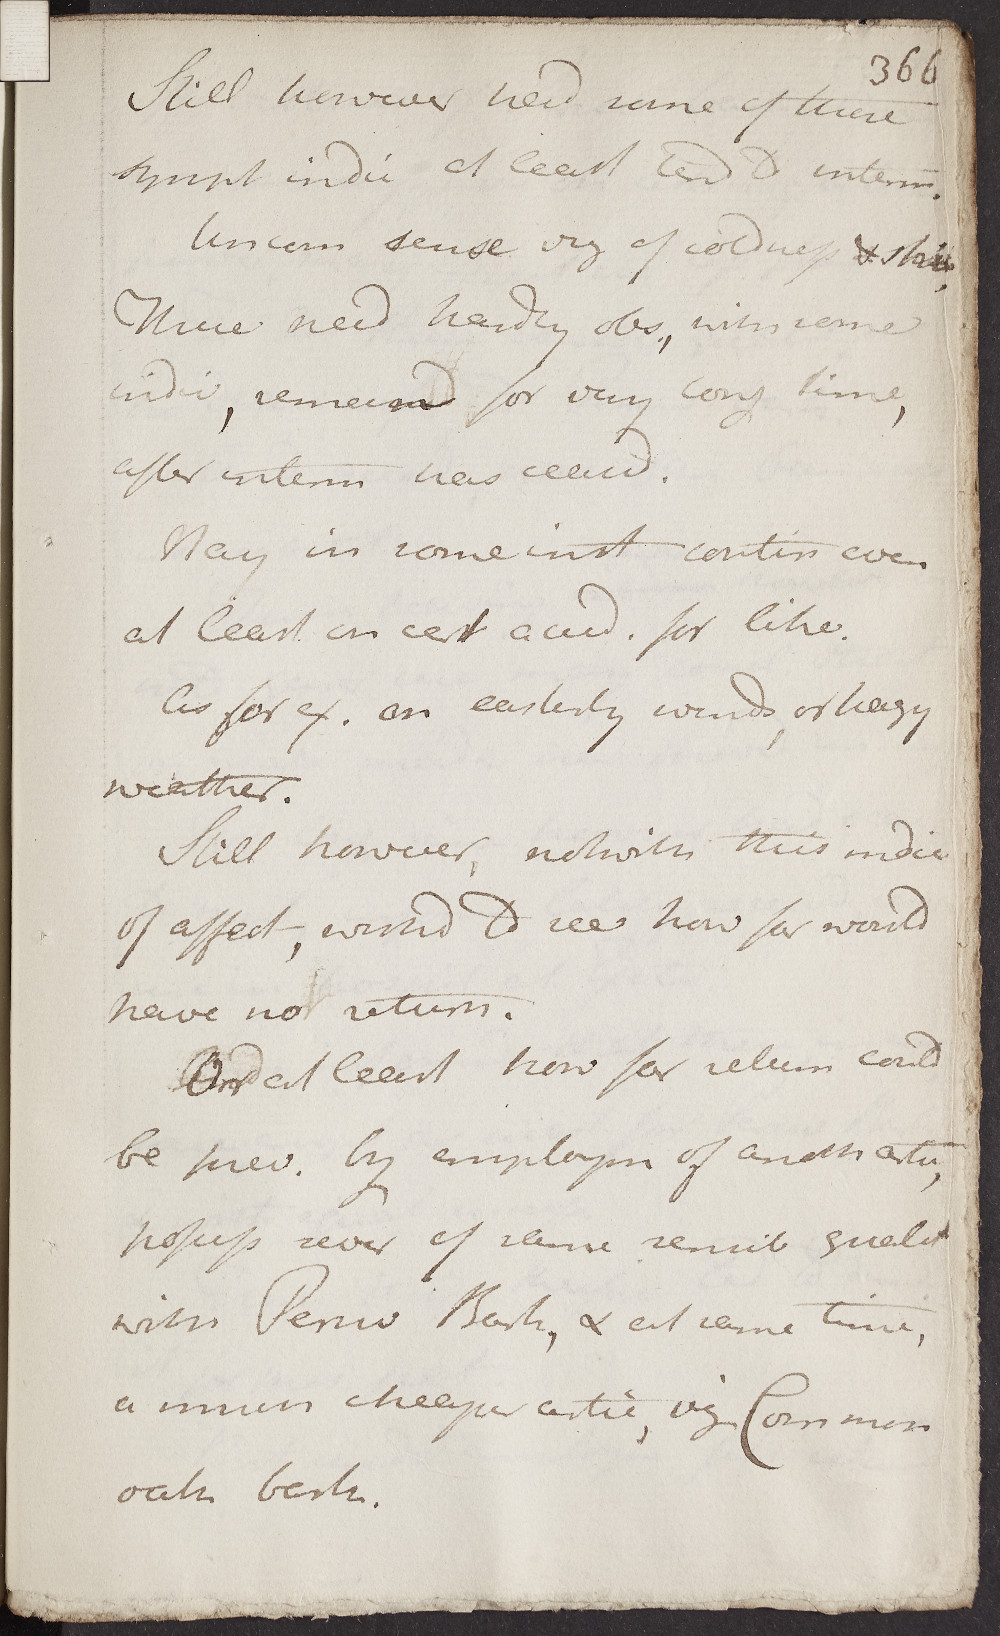 366
Still however had some of these
sympt indic at least tend to interm.
Uncom sense viz of coldness &
These need hardly obs., with some
indiv, remain for very long time,
after interm has ceasd.
May in some inst contin even
at least on cert accid. for life.
As for ex. on easterly winds, or hazy
weather.
Still however, notwith this indic
of affect, wishd to see how far would
have not return.
Or at least how far return could
be prev. by employm of anoth artic,
possess sever of same sensib qualit
with Peruv Bark, & at same time,
a much cheaper artic, viz Common
oak bark.